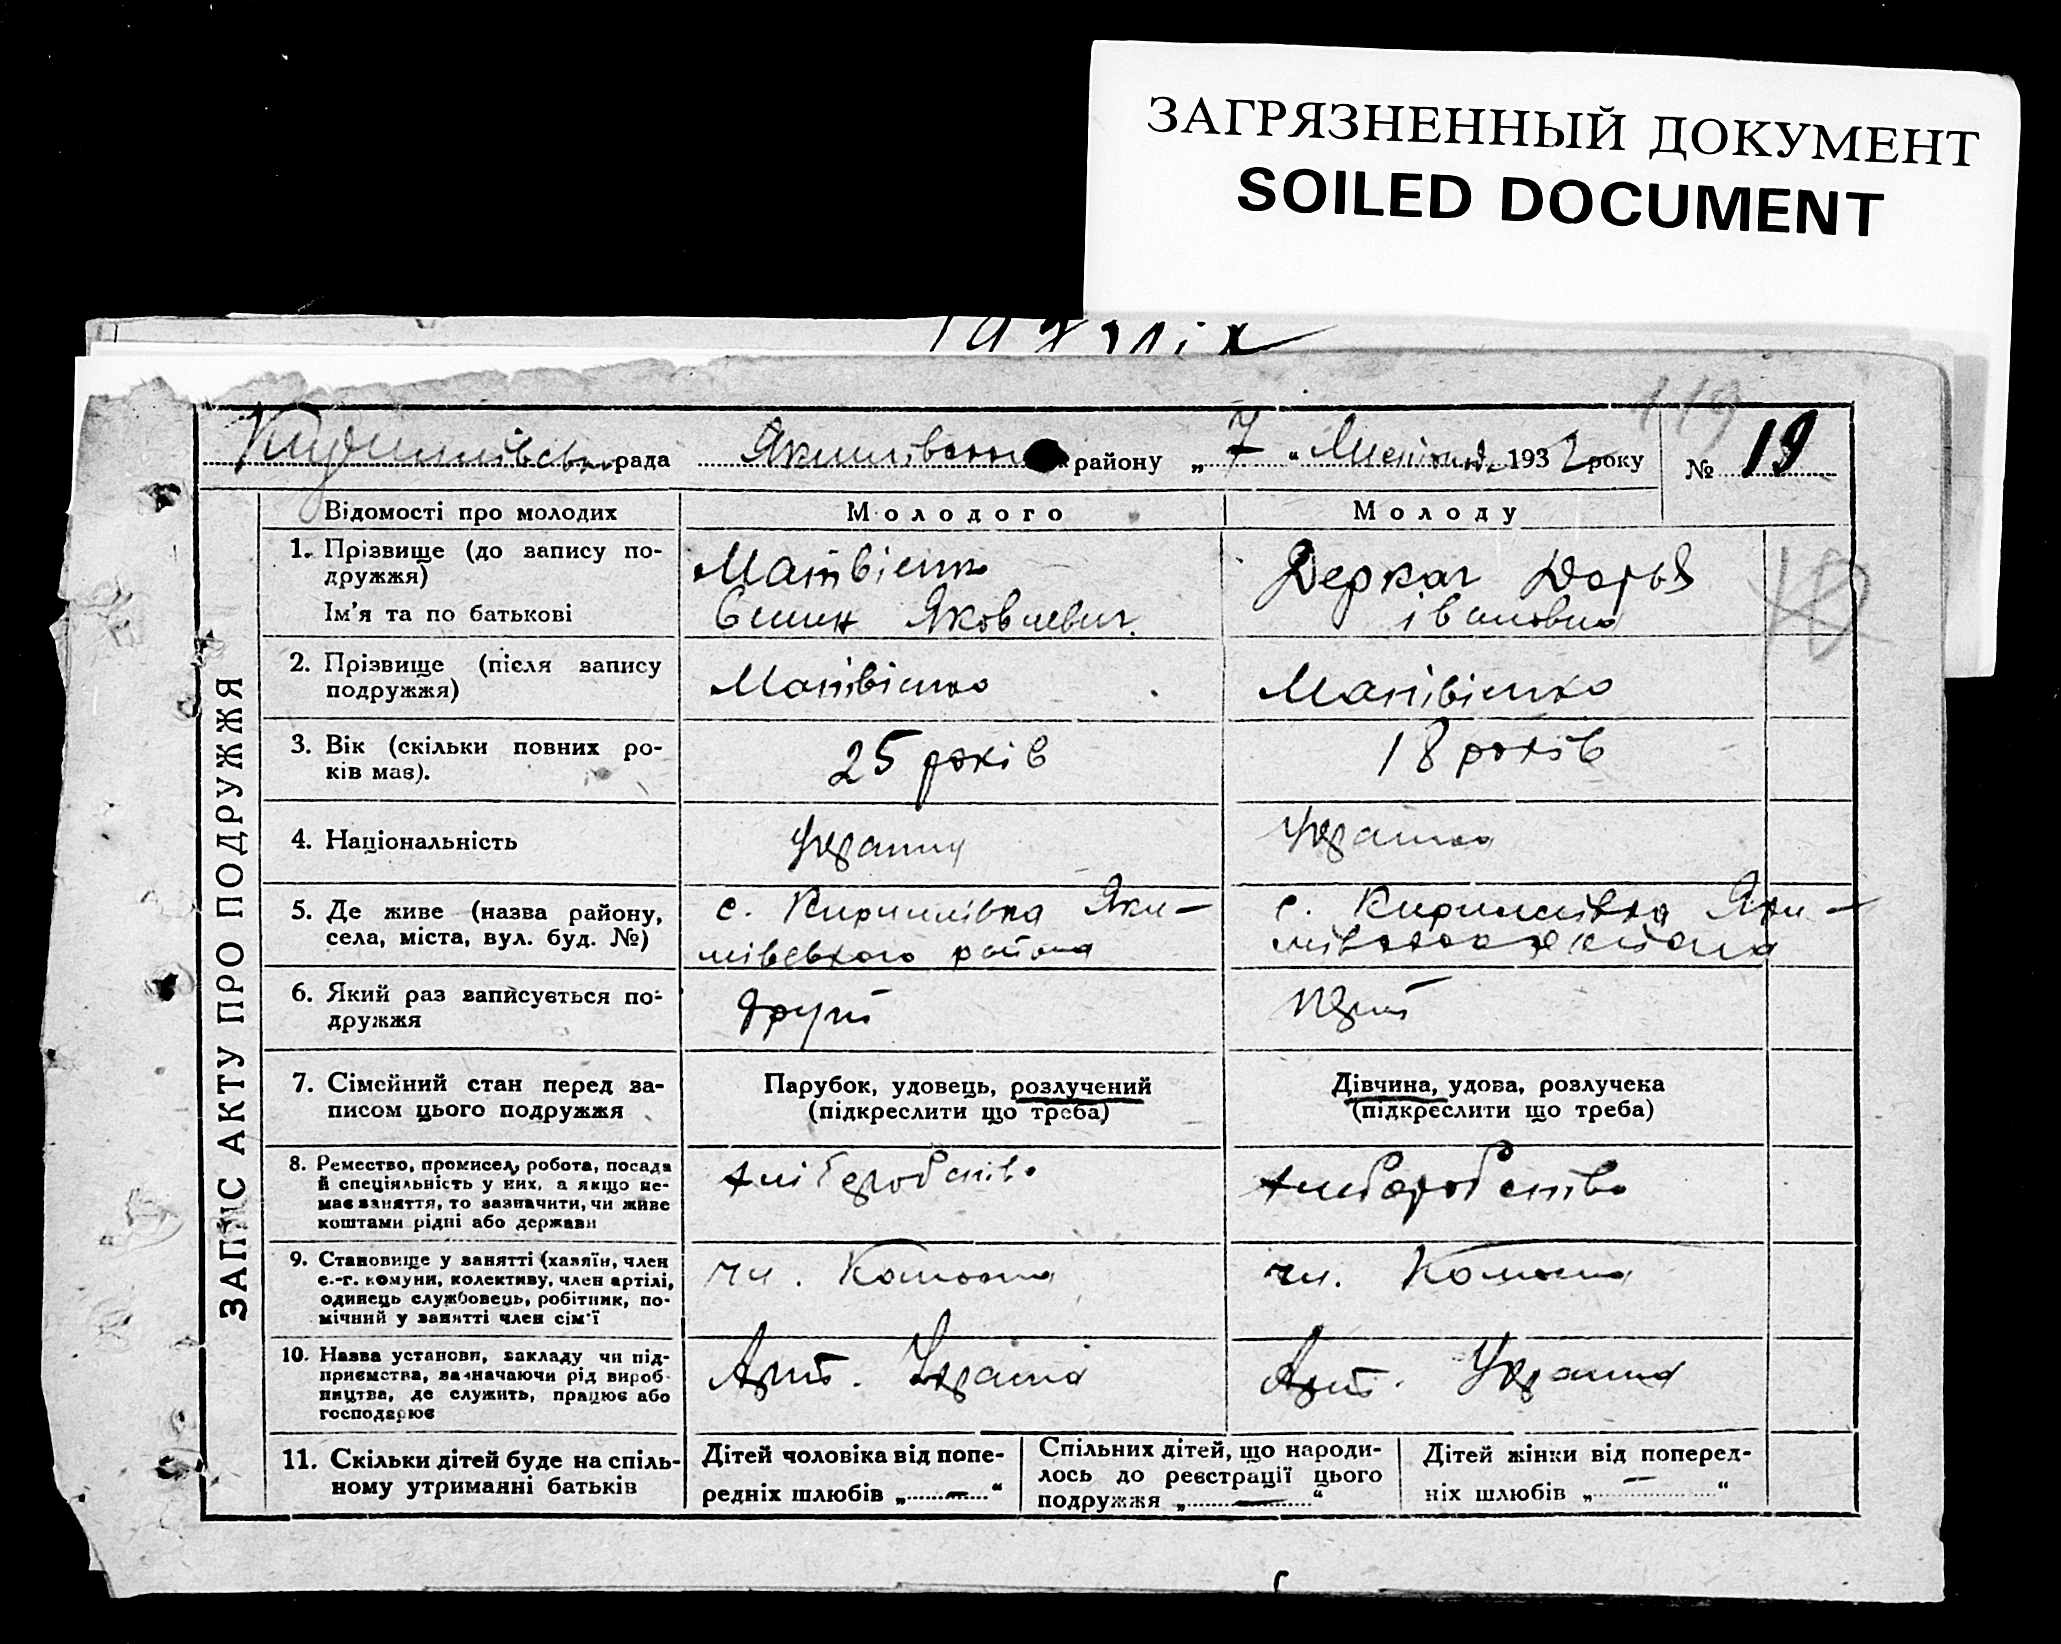 ЗАГРЯЗНЕННЫЙ ДОКУМЕНТ
SOILED DOCUMENT
119
рада Якимівського району „ 7 “ Листопада 1932 року № 19
ЗАПИС АКТУ ПРО ПОДРУЖЖЯ
Відомості про молодих Молодого Молоду
1. Прізвище (до запису по-
дружжя)
Ім'я та по батькові
Матвієнко
Семен Яковлевич
Деркач Дарья
івановна
2. Прізвище (після запису
подружжя)
Матвієнко
Матвієнко
3. Вік (скільки повних ро-
ків має).
25 років
18 років
4. Національність
Українец
Украинка
5. Де живе (назва району,
села, міста, вул. буд. №)
с. Кирилівка Яки-
мівського района
с. Кирилівка Яки-
мівського района
6. Який раз записується по-
дружжя
другий
перший
7. Сімейний стан перед за-
писом цього подружжя
Парубок, удовець, розлучений
(підкреслити що треба)
Дівчина, удова, розлучена
(підкреслити що треба)
8. Ремество, промисел, робота, посада
й спеціяльність у них, а якщо не-
має заняття, то зазначити, чи живе
коштами рідні або держави
хліборобство
хліборобство
9. Становище у занятті (хазяїн, член
с.-г. комуни, колективу, член артілі,
одинець службовець, робітник, по-
мічний у занятті член сім'ї
чл. Колгоспа
чл. Колгоспа
10. Назва установи, закладу чи під-
приємства, зазначаючи рід вироб-
ництва, де служить, працює або
господарює
Арт. Україна
Арт. Україна
11. Скільки дітей буде на спіль-
ному утриманні батьків
Дітей чоловіка від попе-
редніх шлюбів „ — “
Спільних дітей, що народи-
лось до реєстрації цього
подружжя „ — “
Дітей жінки від поперед-
ніх шлюбів „ — “